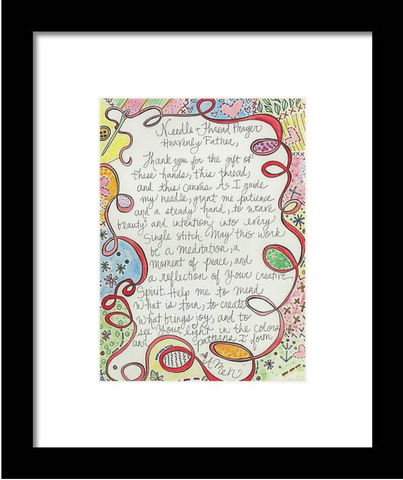 Needle + Thread Prayer
Heavenly Father,
Thank you for the gift of
these hands, this thread,
and this canvas. As I guide
my needle, grant me patience
and a steady hand, to weave
beauty and intention into every
single stitch. May this work
be a meditation, a
moment of peace, and
a reflection of Your creative
Spirit. Help me to mend
what is torn, to create
what brings joy, and to
see Your light in the colors
and patterns I form
Amen